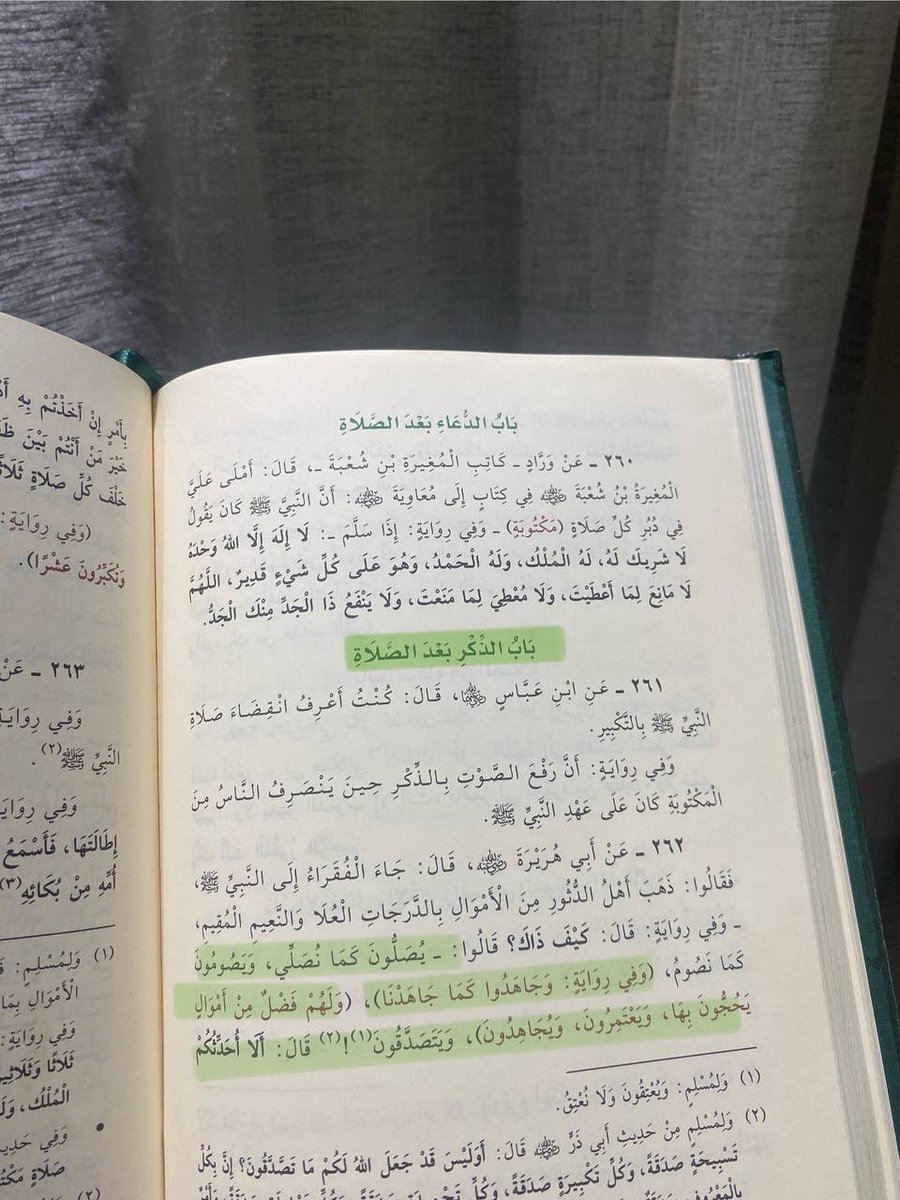 بَابُ الدُّعَاءِ بَعْدَ الصَّلَاةِ
٢٦٠ ـ عَنْ وَرَّادٍ ـ كَاتِبِ الْمُغِيرَةِ بْنِ شُعْبَةَ ـ، قَالَ: أَمْلَى عَلَيَّ
الْمُغِيرَةُ بْنُ شُعْبَةَ ﵁ فِي كِتَابٍ إِلَى مُعَاوِيَةَ ﵁: أَنَّ النَّبِيَّ ﷺ كَانَ يَقُولُ
فِي دُبُرِ كُلِّ صَلَاةٍ (مَكْتُوبَةٍ) ـ وَفِي رِوَايَةٍ: إِذَا سَلَّمَ ـ: لَا إِلَهَ إِلَّا اللهُ وَحْدَهُ
لَا شَرِيكَ لَهُ، لَهُ الْمُلْكُ، وَلَهُ الْحَمْدُ، وَهُوَ عَلَى كُلِّ شَيْءٍ قَدِيرٌ، اللَّهُمَّ
لَا مَانِعَ لِمَا أَعْطَيْتَ، وَلَا مُعْطِيَ لِمَا مَنَعْتَ، وَلَا يَنْفَعُ ذَا الْجَدِّ مِنْكَ الْجَدُّ.
بَابُ الذِّكْرِ بَعْدَ الصَّلَاةِ
٢٦١ ـ عَنِ ابْنِ عَبَّاسٍ ﵄، قَالَ: كُنْتُ أَعْرِفُ انْقِضَاءَ صَلَاةِ
النَّبِيِّ ﷺ بِالتَّكْبِيرِ.
وَفِي رِوَايَةٍ: أَنَّ رَفْعَ الصَّوْتِ بِالذِّكْرِ حِينَ يَنْصَرِفُ النَّاسُ مِنَ
الْمَكْتُوبَةِ كَانَ عَلَى عَهْدِ النَّبِيِّ ﷺ.
٢٦٢ ـ عَنْ أَبِي هُرَيْرَةَ ﵁، قَالَ: جَاءَ الْفُقَرَاءُ إِلَى النَّبِيِّ ﷺ،
فَقَالُوا: ذَهَبَ أَهْلُ الدُّثُورِ مِنَ الْأَمْوَالِ بِالدَّرَجَاتِ الْعُلَا وَالنَّعِيمِ الْمُقِيمِ،
ـ وَفِي رِوَايَةٍ: قَالَ: كَيْفَ ذَاكَ؟ قَالُوا: ـ يُصَلُّونَ كَمَا نُصَلِّي، وَيَصُومُونَ
كَمَا نَصُومُ، (وَفِي رِوَايَةٍ: وَجَاهَدُوا كَمَا جَاهَدْنَا)، (وَلَهُمْ فَضْلٌ مِنْ أَمْوَالٍ
يَحُجُّونَ بِهَا، وَيَعْتَمِرُونَ، وَيُجَاهِدُونَ)، وَيَتَصَدَّقُونَ(١)!(٢) قَالَ: أَلَا أُحَدِّثُكُمْ
(١) وَلِمُسْلِمٍ: وَيُعْتِقُونَ وَلَا نُعْتِقُ.
(٢) وَلِمُسْلِمٍ مِنْ حَدِيثِ أَبِي ذَرٍّ ﵁ قَالَ: أَوَلَيْسَ قَدْ جَعَلَ اللهُ لَكُمْ مَا تَصَدَّقُونَ؟ إِنَّ بِكُلِّ
تَسْبِيحَةٍ صَدَقَةً، وَكُلِّ تَكْبِيرَةٍ صَدَقَةً، وَكُلِّ
بِأَمْرٍ إِنْ أَخَذْتُمْ بِهِ
خَيْرَ مَنْ أَنْتُمْ بَيْنَ
خَلْفَ كُلِّ صَلَاةٍ
(وَفِي رِوَايَةٍ:
وَتُكَبِّرُونَ عَشْرًا).
٢٦٣ ـ عَنْ
وَفِي رِوَايَةٍ
النَّبِيِّ ﷺ(٢).
وَفِي
إِطَالَتَهَا، فَأَسْمَعُ
أُمِّهِ مِنْ بُكَائِهِ(٣)
(١) وَلِمُسْلِمٍ:
الْأَمْوَالِ بِمَا
وَفِي رِوَايَةٍ:
ثَلَاثًا
الْمُلْكُ،
• وَفِي
صَلَاةٍ
(٢)